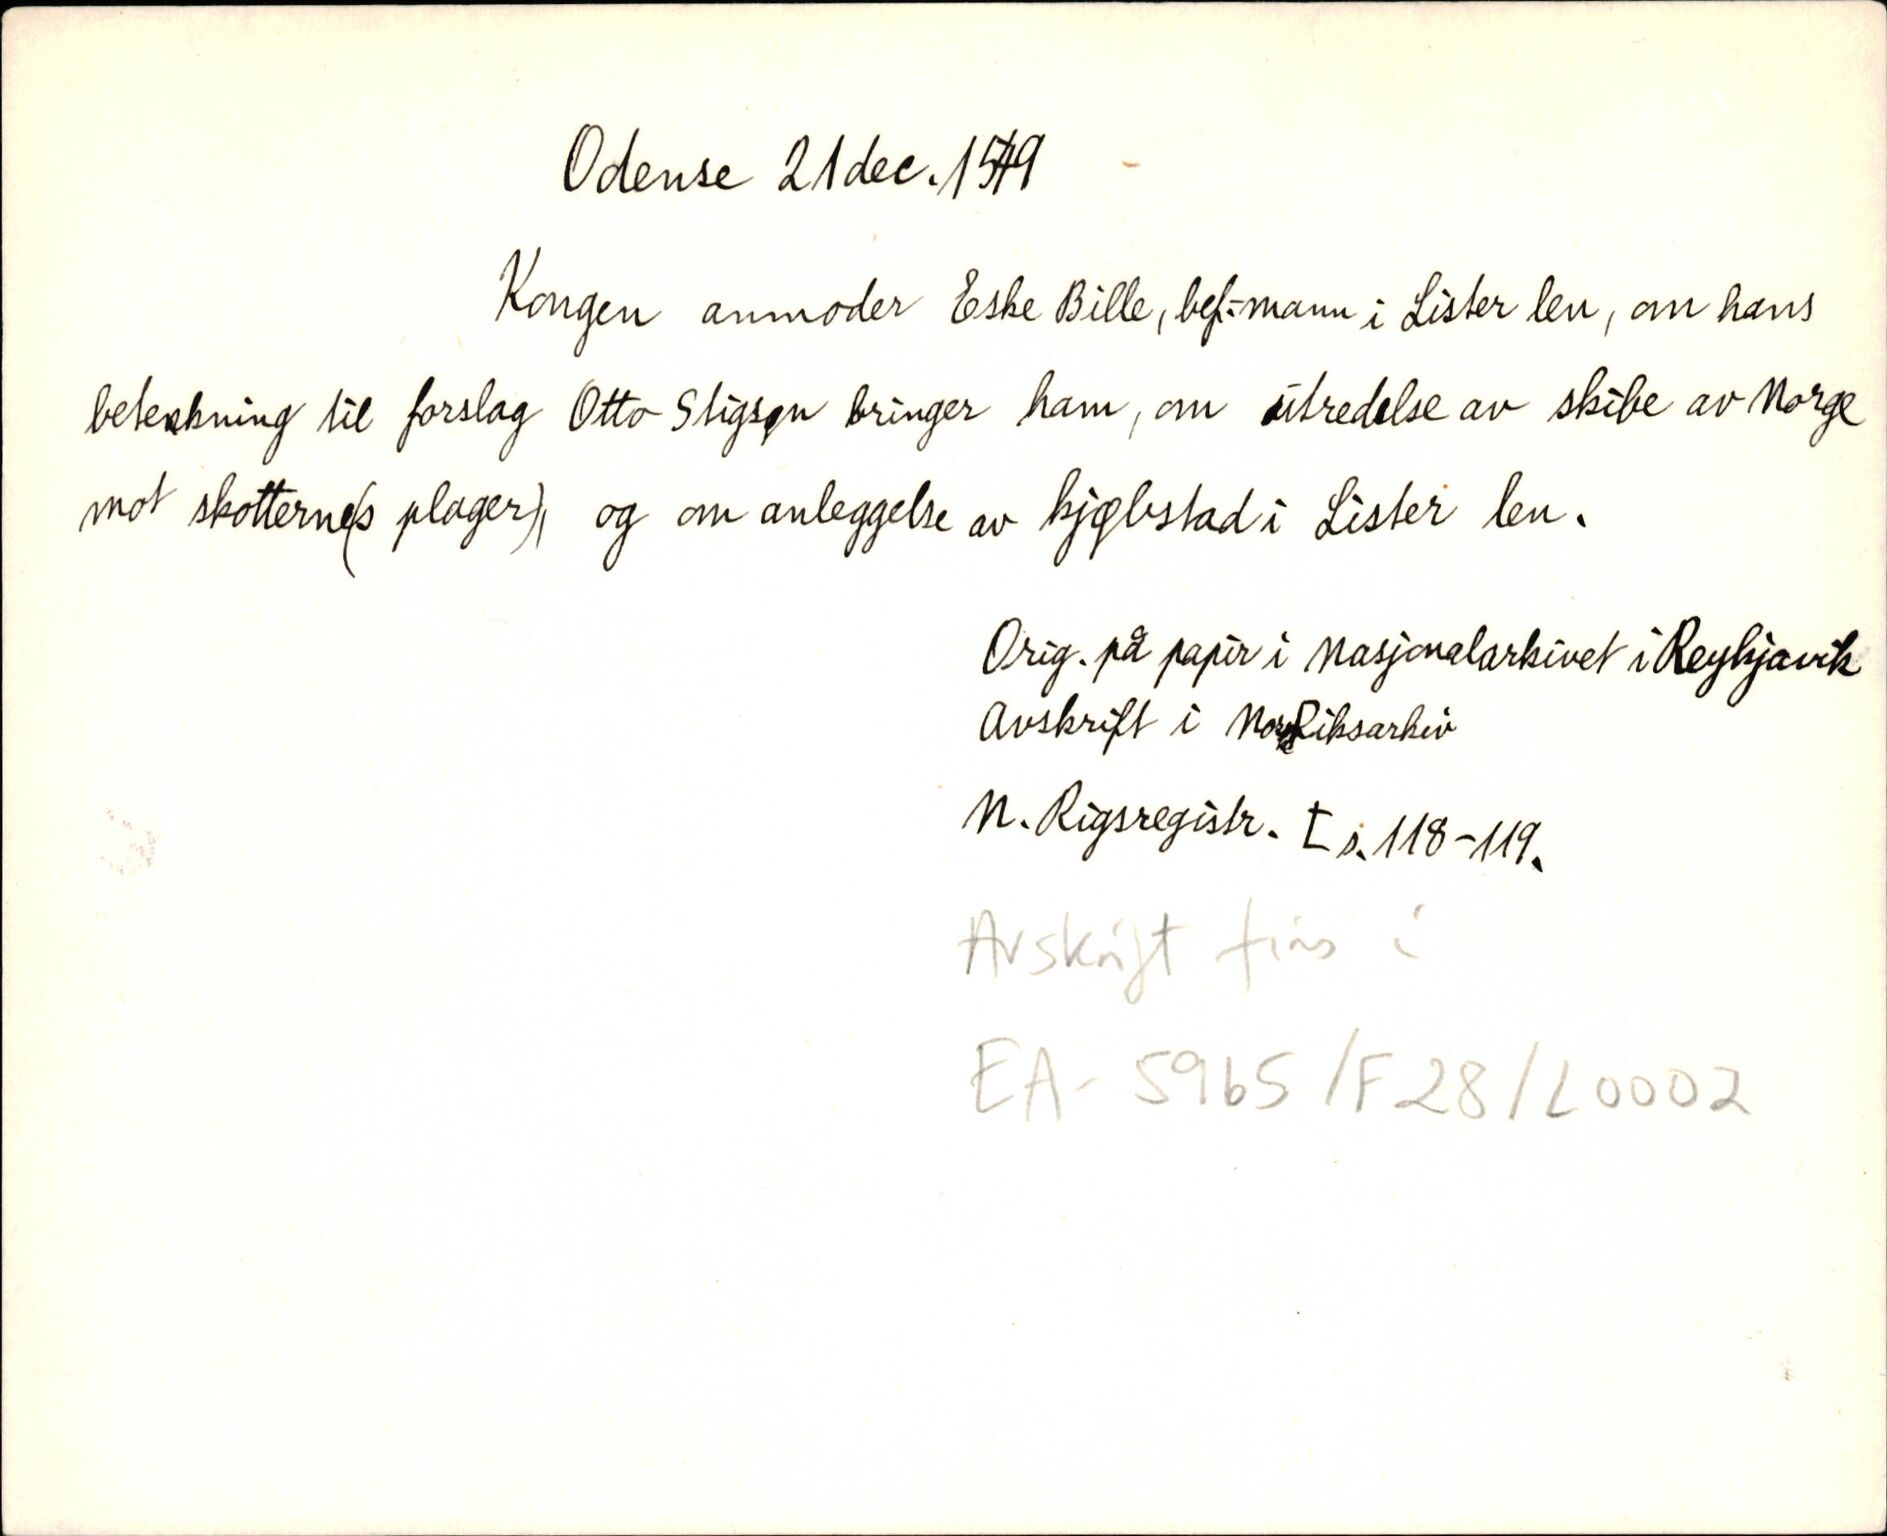 Odense 21 dec. 1549
Kongen anmoder Eske Bille, bef.-mann i Lister len, om hans
betenkning til forslag Otto Stigsøn bringer ham, om utredelse av skibe av Norge
mot skotterne(s plager), og om anleggelse av kjøbstad i Lister len.
Orig. på papir i Nasjonalarkivet i Reykjavik
Avskrift i Riksarkiv
N. Rigsregistr. I s. 118-119.
Avskrift fins i
EA- 5965/F28/L0002